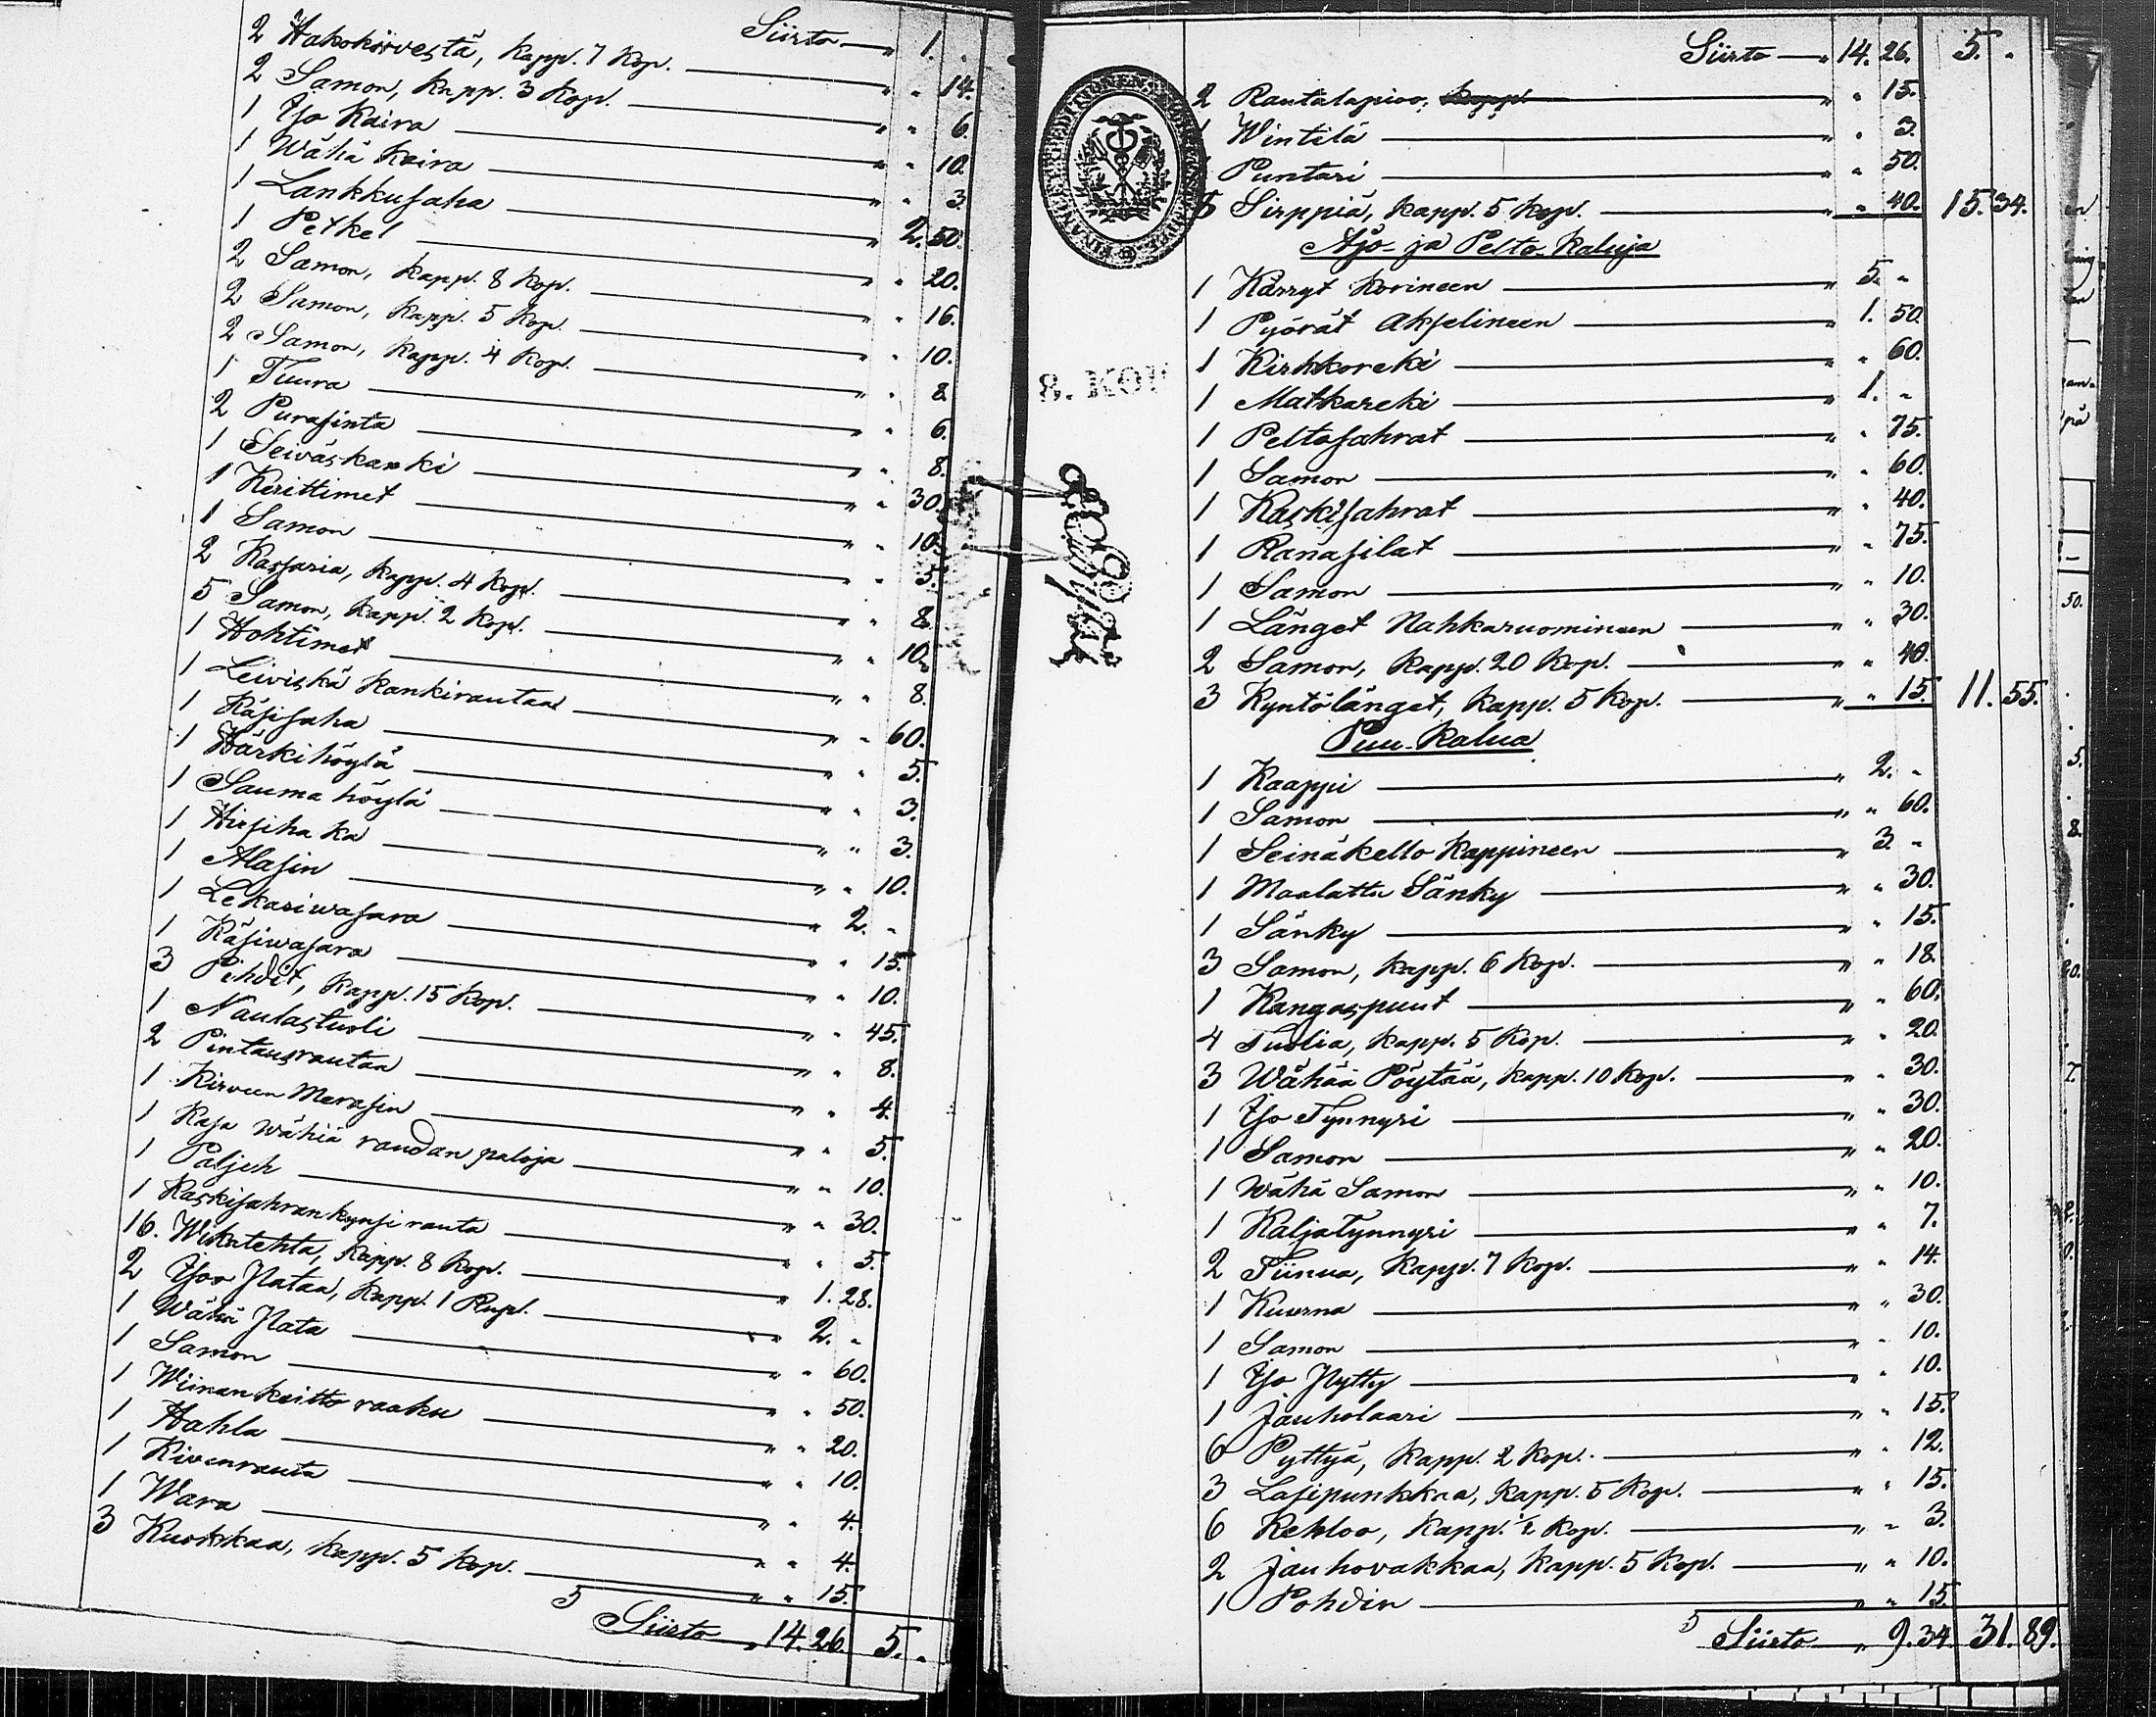 Siirto — " 1.
2 Hakokirvestä, kapp. 7 kop. — " " 14.
2 Samon, kapp. 3 kop. — " " 6.
1 Iso Kaira — " " 10.
1 Wähä kaira — " " 3.
1 Lankkusaha — " 2. 50.
1 Petkel — " " 20.
2 Samon, kapp. 8 kop. — " " 16.
2 Samon, kapp. 5 kop. — " " 10.
2 Samon, kapp. 4 kop. — " " 8.
1 Tuura — " " 6.
2 Purasinta — " " 8.
1 Seiväskanki — " " 30.
1 Kerittimet — " " 10.
1 Samon — " " 5.
2 Kassaria, kapp. 4 kop. — " " 8.
5 Samon, kapp. 2 kop. — " " 10.
1 Hohtimet — " " 8.
1 Leiviskä kankirautaa — " " 60.
1 Käsisaha — " " 5.
1 Härkihöylä — " " 3.
1 Sauma höylä — " " 3.
1 Hirsiha ka — " " 10.
1 Alasin — " 2. "
1 Lekasiwasara — " " 15.
1 Käsiwasara — " " 10.
3 Pihdit, kapp. 15 kop. — " " 45.
1 Naulastuoli — " " 8.
2 Pintausrautaa — " " 4.
1 Kirveen Merasin — " " 5.
1 Kasa wähiä raudan paloja — " " 10.
1 Paljeh — " " 30.
1 Kaskisahran kynsi rauta — " " 5.
16. Wikatehta, kapp. 8 kop. — " 1. 28.
2 Isoo Nataa, kapp. 1 Rupl. — " 2. "
1 Wähä Nata — " " 60.
1 Samon — " " 50.
1 Wiinankeitto raaku — " " 20.
1 Hahla — " " 10.
1 Kivenrauta — " " 4.
1 Wara — " " 4.
3 Kuokkaa, kapp. 5 kop. — " " 15.
Siirto " 14. 26. 5. "
Siirto — " 14. 26. 5. "
2 Rautalapioo, kapp. — " " 15.
1 Wintilä — " " 3.
1 Puntari — " " 50.
8 Sirppiä, kapp. 5 kop. — " " 40. 15. 34.
Ajo- ja Pelto-Kaluja
1 Kärryt korineen — " 5. "
1 Pyörät Akselineen — " 1. 50.
1 Kirkkoreki — " " 60.
1 Matkareki — " 1. "
1 Peltosahrat — " " 75.
1 Samon — " " 60.
1 Kaskisahrat — " " 40.
1 Ranasilat — " " 75.
1 Samon — " " 10.
1 Länget Nahkaruomineen — " " 30.
2 Samon, kapp. 20 kop. — " " 40.
3 Kyntölänget, kapp. 5 kop. — " " 15. 11. 55.
Puu-Kalua
1 Kaappi — " 2. "
1 Samon — " " 60.
1 Seinäkello Kappineen — " 3. "
1 Maalattu Sänky — " " 30.
1 Sänky — " " 15.
3 Samon, kapp. 6 kop. — " " 18.
1 Kangaspuut — " " 60.
4 Tuolia, kapp. 5 kop. — " " 20.
3 Wähää Pöytää, kapp. 10 kop. — " " 30.
1 Iso Tynnyri — " " 30.
1 Samon — " " 20.
1 Wähä Samon — " " 10.
1 Kaljatynnyri — " " 7.
2 Tiinua, kapp. 7 kop. — " " 14.
1 Kuurna — " " 30.
1 Samon — " " 10.
1 Iso Nytty — " " 10.
1 Jauholaari — " " 15.
6 Pyttyä, kapp. 2 kop. — " " 12.
3 Lasipunkkaa, kapp. 5 kop. — " " 15.
6 Kehloo, kapp. ½ kop. — " " 3.
2 Jauhovakkaa, kapp. 5 kop. — " " 10.
1 Pohdin — " " 15.
Siirto — " 9. 34. 31. 89.
8. KOP